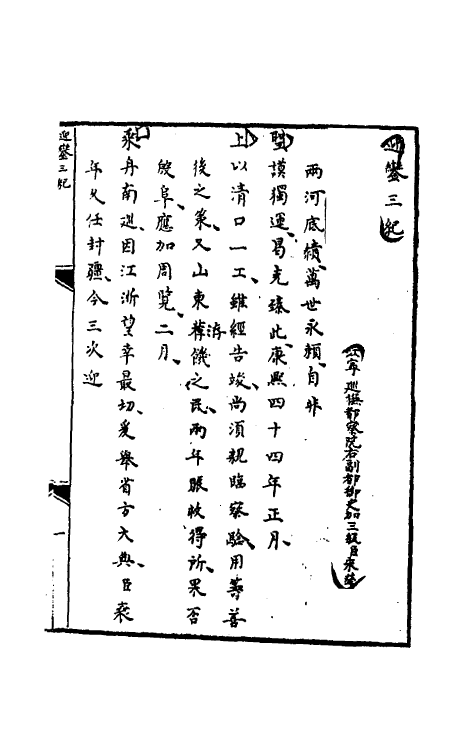 迎鑾三紀
江寧巡撫都察院右副都御史加三級臣宋犖
兩河底績萬世永賴自非
聖謨獨運曷克臻此康熙四十四年正月
上以清口一工雖經告竣尚須親臨察驗用籌善
後之策又山東洊饑之民兩年賑救得所果否
殷阜應加周覽二月
乘舟南巡因江浙望幸最切爰舉省方大典臣宋
年久任封疆今三次迎
迎鑾三紀
一